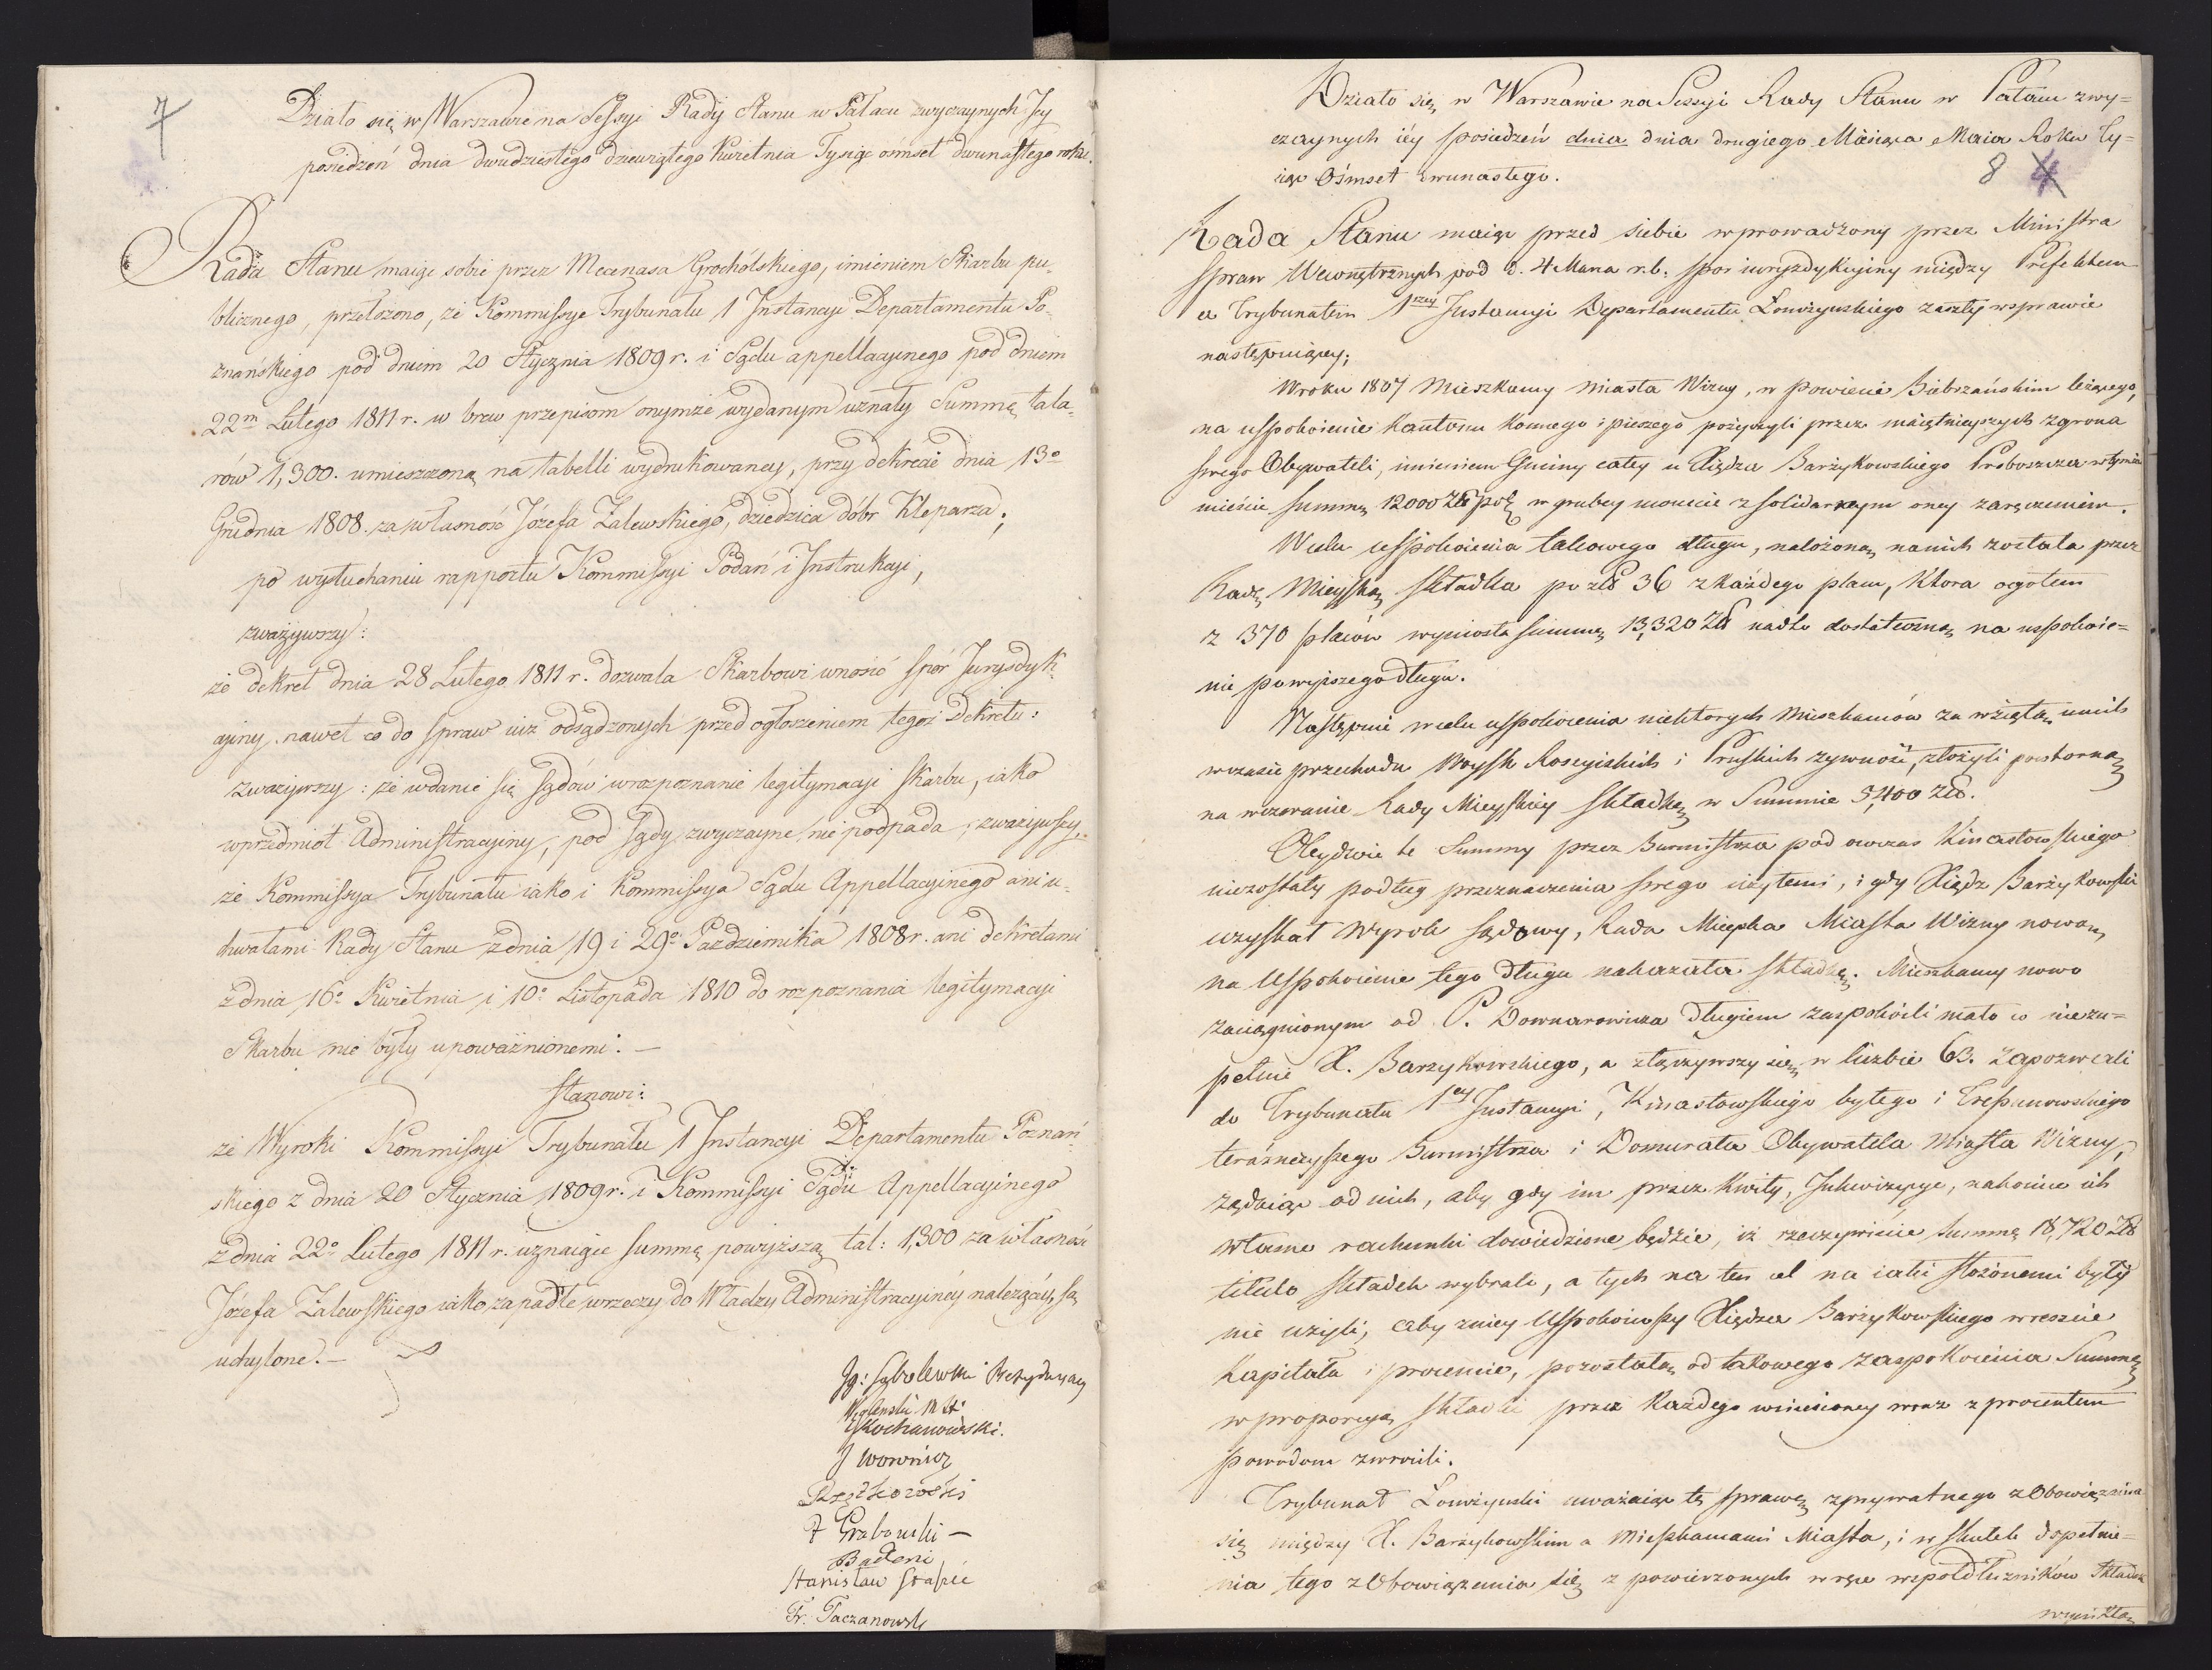 7
Działo się w Warszawie na Sessyi Rady Stanu w Pałacu zwyczaynych Jey
posiedzeń dnia dwudziestego dziewiątego Kwietnia Tysiąc ośmset dwunastego roku.
Rada Stanu maiąc sobie przez Mecenasa Grochólskiego, imieniem Skarbu pu-
blicznego, przełożono, że Kommissye Trybunału 1 Instancyi Departamentu Po-
znańskiego pod dniem 20 Stycznia 1809 r. i Sądu appellacyinego pod dniem
22m Lutego 1811 r. w brew przepisom onymże wydanym uznały Summę tala-
rów 1,300. umieszczoną na tabelli wydrukowaney, przy dekrecie dnia 13o
Grudnia 1808. za własność Józefa Zalewskiego, dziedzica dóbr Kleparza;
po wysłuchaniu rapportu Kommissyi Podań i Instrukcyi,
zważywszy:
że dekret dnia 28 Lutego 1811 r. dozwala Skarbowi wnosić spór Jurysdyk-
cyiny nawet co do spraw iuż odsądzonych przed ogłoszeniem tegoż Dekretu:
zważywszy: że wdanie się Sądów w rozpoznanie legitymacyi Skarbu, iako
w przedmiot Administracyiny, pod Sądy zwyczayne nie podpada; zważywszy,
że Kommissya Trybunału iako i Kommissya Sądu Appellacyinego ani u-
chwałami Rady Stanu z dnia 19 i 29o Października 1808 r. ani dekretami
z dnia 16o Kwietnia i 10o Listopada 1810 do rozpoznania legitymacyi
Skarbu nie były upoważnionemi. —
Stanowi:
że Wyroki Kommissyi Trybunału 1 Instancyi Departamentu Poznań-
skiego z dnia 20 Stycznia 1809 r. i Kommissyi Sądu Appellacyinego
z dnia 22o Lutego 1811 r. uznaiące summę powyższą tal: 1,300 za własność
Józefa Zalewskiego iako zapadłe w rzeczy do Władzy Administracyinéy należącéy, są
uchylone. —
Ig: Sobolewski Prezyduiący
Węgleński M. St.
Kochanowski.
J Woronicz
F Grabowski —
Badeni
Stanisław Staszic
Fr. Taczanowski
Działo się w Warszawie na Sessyi Rady Stanu w Pałacu zwy=
czaynych iéy posiedzeń dnia dnia drugiego Miesiąca Maia Roku Ty=
siąc Ośmset dwunastego.
8 4
Rada Stanu maiąc przed siebie wprowadzony przez Ministra
Spraw Wewnętrznych pod d. 4 Marca r. b. spór iuryzdykcyiny między Prefektem
a Trybunałem 1szey Instancyi Departamentu Łomżyńskiego zaszły w sprawie
następuiącey;
W roku 1807 Mieszkańcy Miasta Wizny, w Powiecie Biebrzańskim leżącego,
na uspokoienie Kantonu konnego i pieszego pożyczyli przez maiętnieyszych z grona
swego Obywateli, imieniem Gminy całey u Xiędza Barzykowskiego Proboszcza w tymże
mieście Summę 12000 Złł pol w grubey monecie z solidarnym oney zaręczeniem.
W celu uspokoienia takowego długu, nałożoną na nich została przez
Radę Mieyską składka po złł 36 z każdego placu, która ogółem
z 370 placów wyniosła summę 13,320 Złł nadto dostateczną na uspokoie=
nie powyższego długu.
Następnie w celu uspokoienia niektorych Mieszkańców za wziętą u nich
w czasie przechodu Woysk Rossyiskich i Pruskich żywność, złożyli powtorną
na wezwanie Rady Mieyskiey składkę w Summie 5,400 złł.
Obydwie te Summy przez Burmistrza pod owczas Kinastowskiego
nie zostały podług przeznaczenia swego użytemi, i gdy Xiądz Barzykowski
uzyskał wyrok Sądowy, Rada Mieyska Miasta Wizny nową
na uspokoienie tego długu nakazała składkę. Mieszkańcy nowo
zaciągnionym od P. Downarowicza długiem zaspokoili mało co niezu=
pełnie X. Barzykowskiego, a złączywszy się w liczbie 63. zapozwali
do Trybunału 1ey Instancyi, Kinastowskiego byłego i
teraźnieyszego Burmistrza i Domurata Obywatela Miasta Wizny,
żądaiąc od nich, aby gdy im przez Kwity, Inkwizycye, nakoniec ich
własne rachunki dowiedzione będzie, iż rzeczywiście Summę 18,720 Złł
titulo składek wybrali, a tych na ten cel na iaki złożonemi były
nie użyli, aby z niey uspokoiwszy Xiędza Barzykowskiego w reszcie
Kapitału i procencie, pozostałą od takowego zaspokoienia Summę
w proporcyą składki przez każdego wniesioney wraz z procentem
powodom zwrócili.
Trybunał Łomżyński uważaiąc tę sprawę z prywatnego zobowiązania
się między X. Barzykowskim a Mieszkańcami Miasta, i w skutek dopełnie=
nia tego zobowiązania się z powierzonych w ręce współdłużników składek
wynikłą